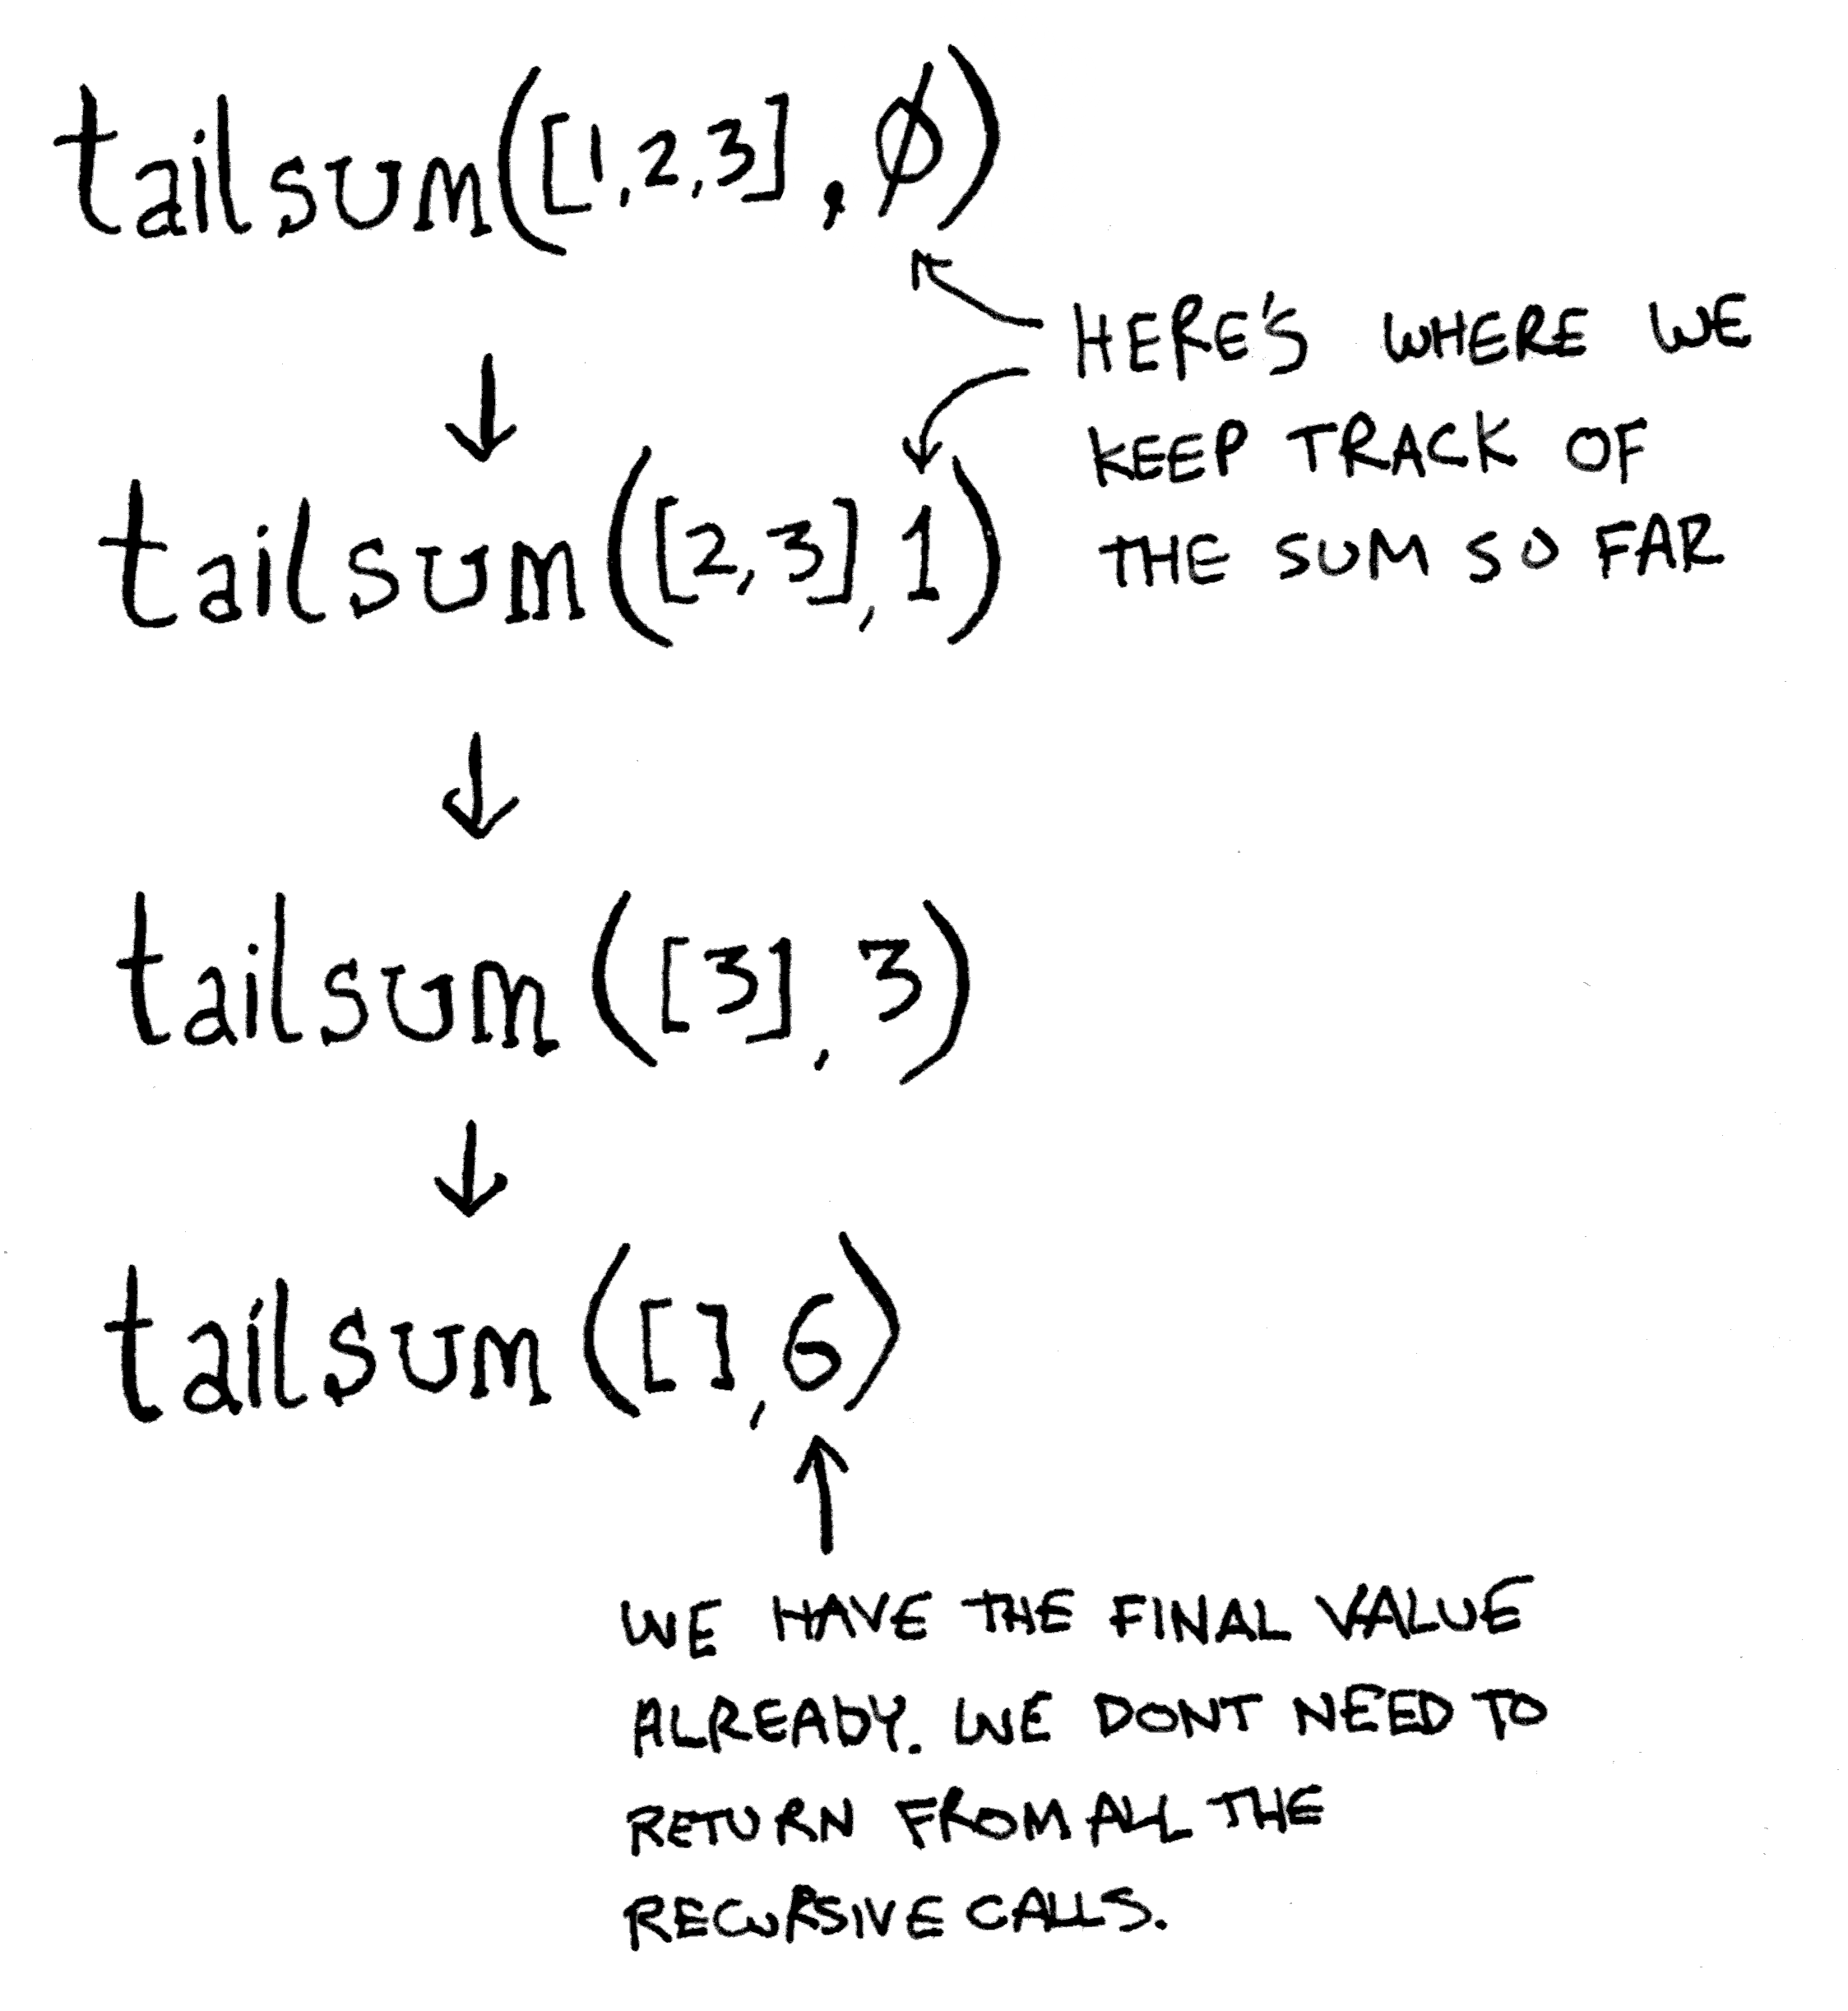 tailsum([1,2,3],0)
HERE'S WHERE WE
KEEP TRACK OF
THE SUM SO FAR
tailsum([2,3],1)
tailsum([3],3)
tailsum([],6)
WE HAVE THE FINAL VALUE
ALREADY. WE DONT NEED TO
RETURN FROM ALL THE
RECURSIVE CALLS.